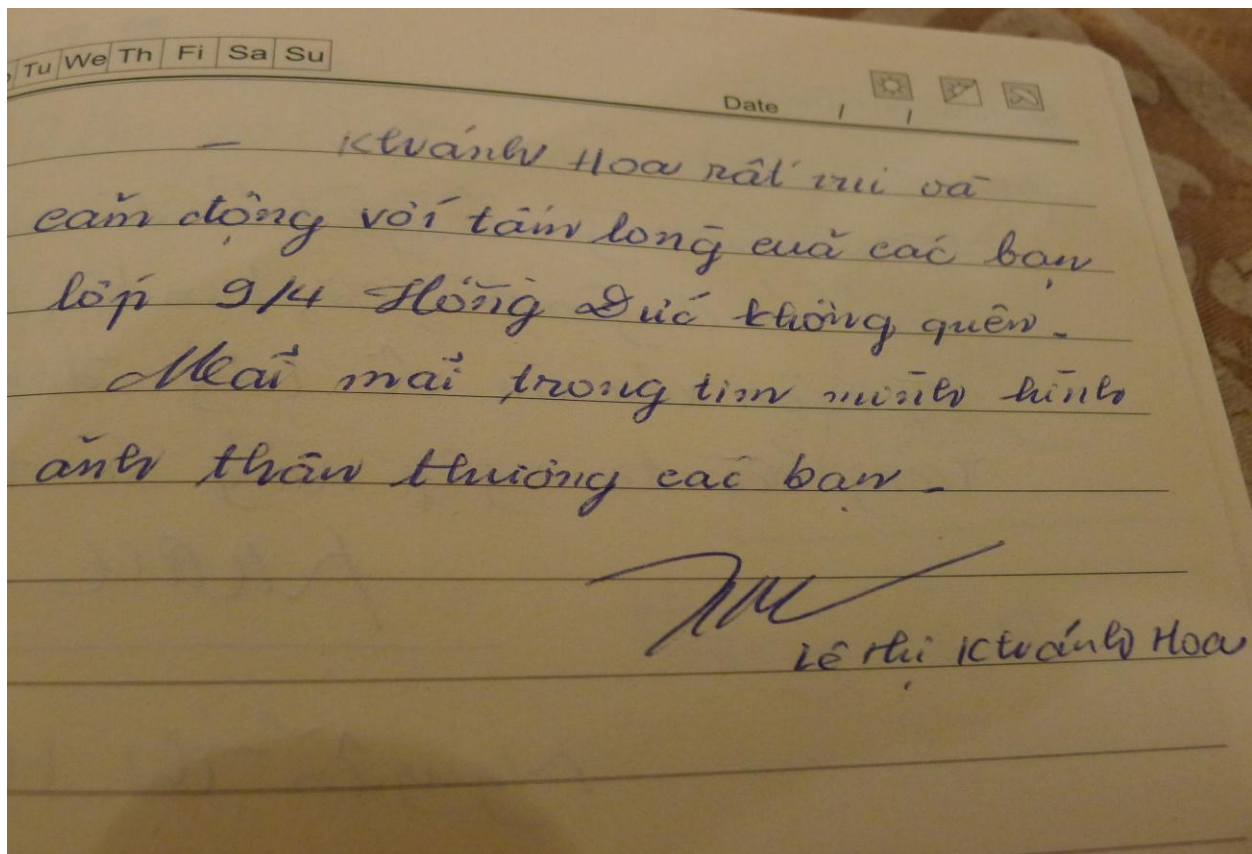 Tu We Th Fi Sa Su
Date / /
- Khánh Hoa rất vui và
cảm động với tấm lòng của các bạn
lớp 9/4 Hồng Đức không quên.
Mãi mãi trong tim mình hình
ảnh thân thương các bạn.
Lê Thị Khánh Hoa